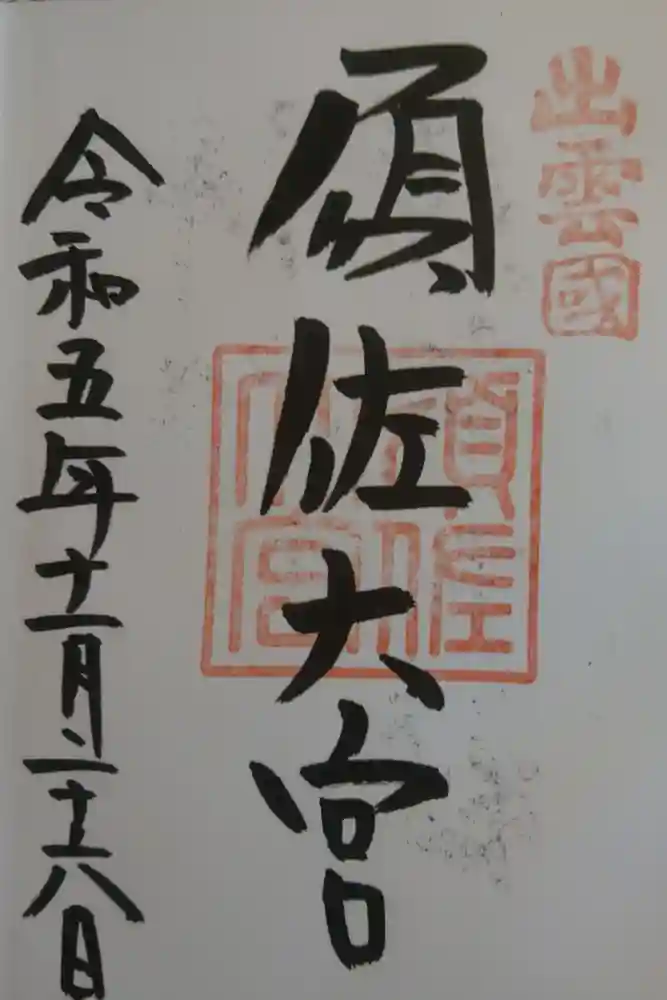 出雲國
須佐大宮
須佐大宮
令和五年十一月二十八日